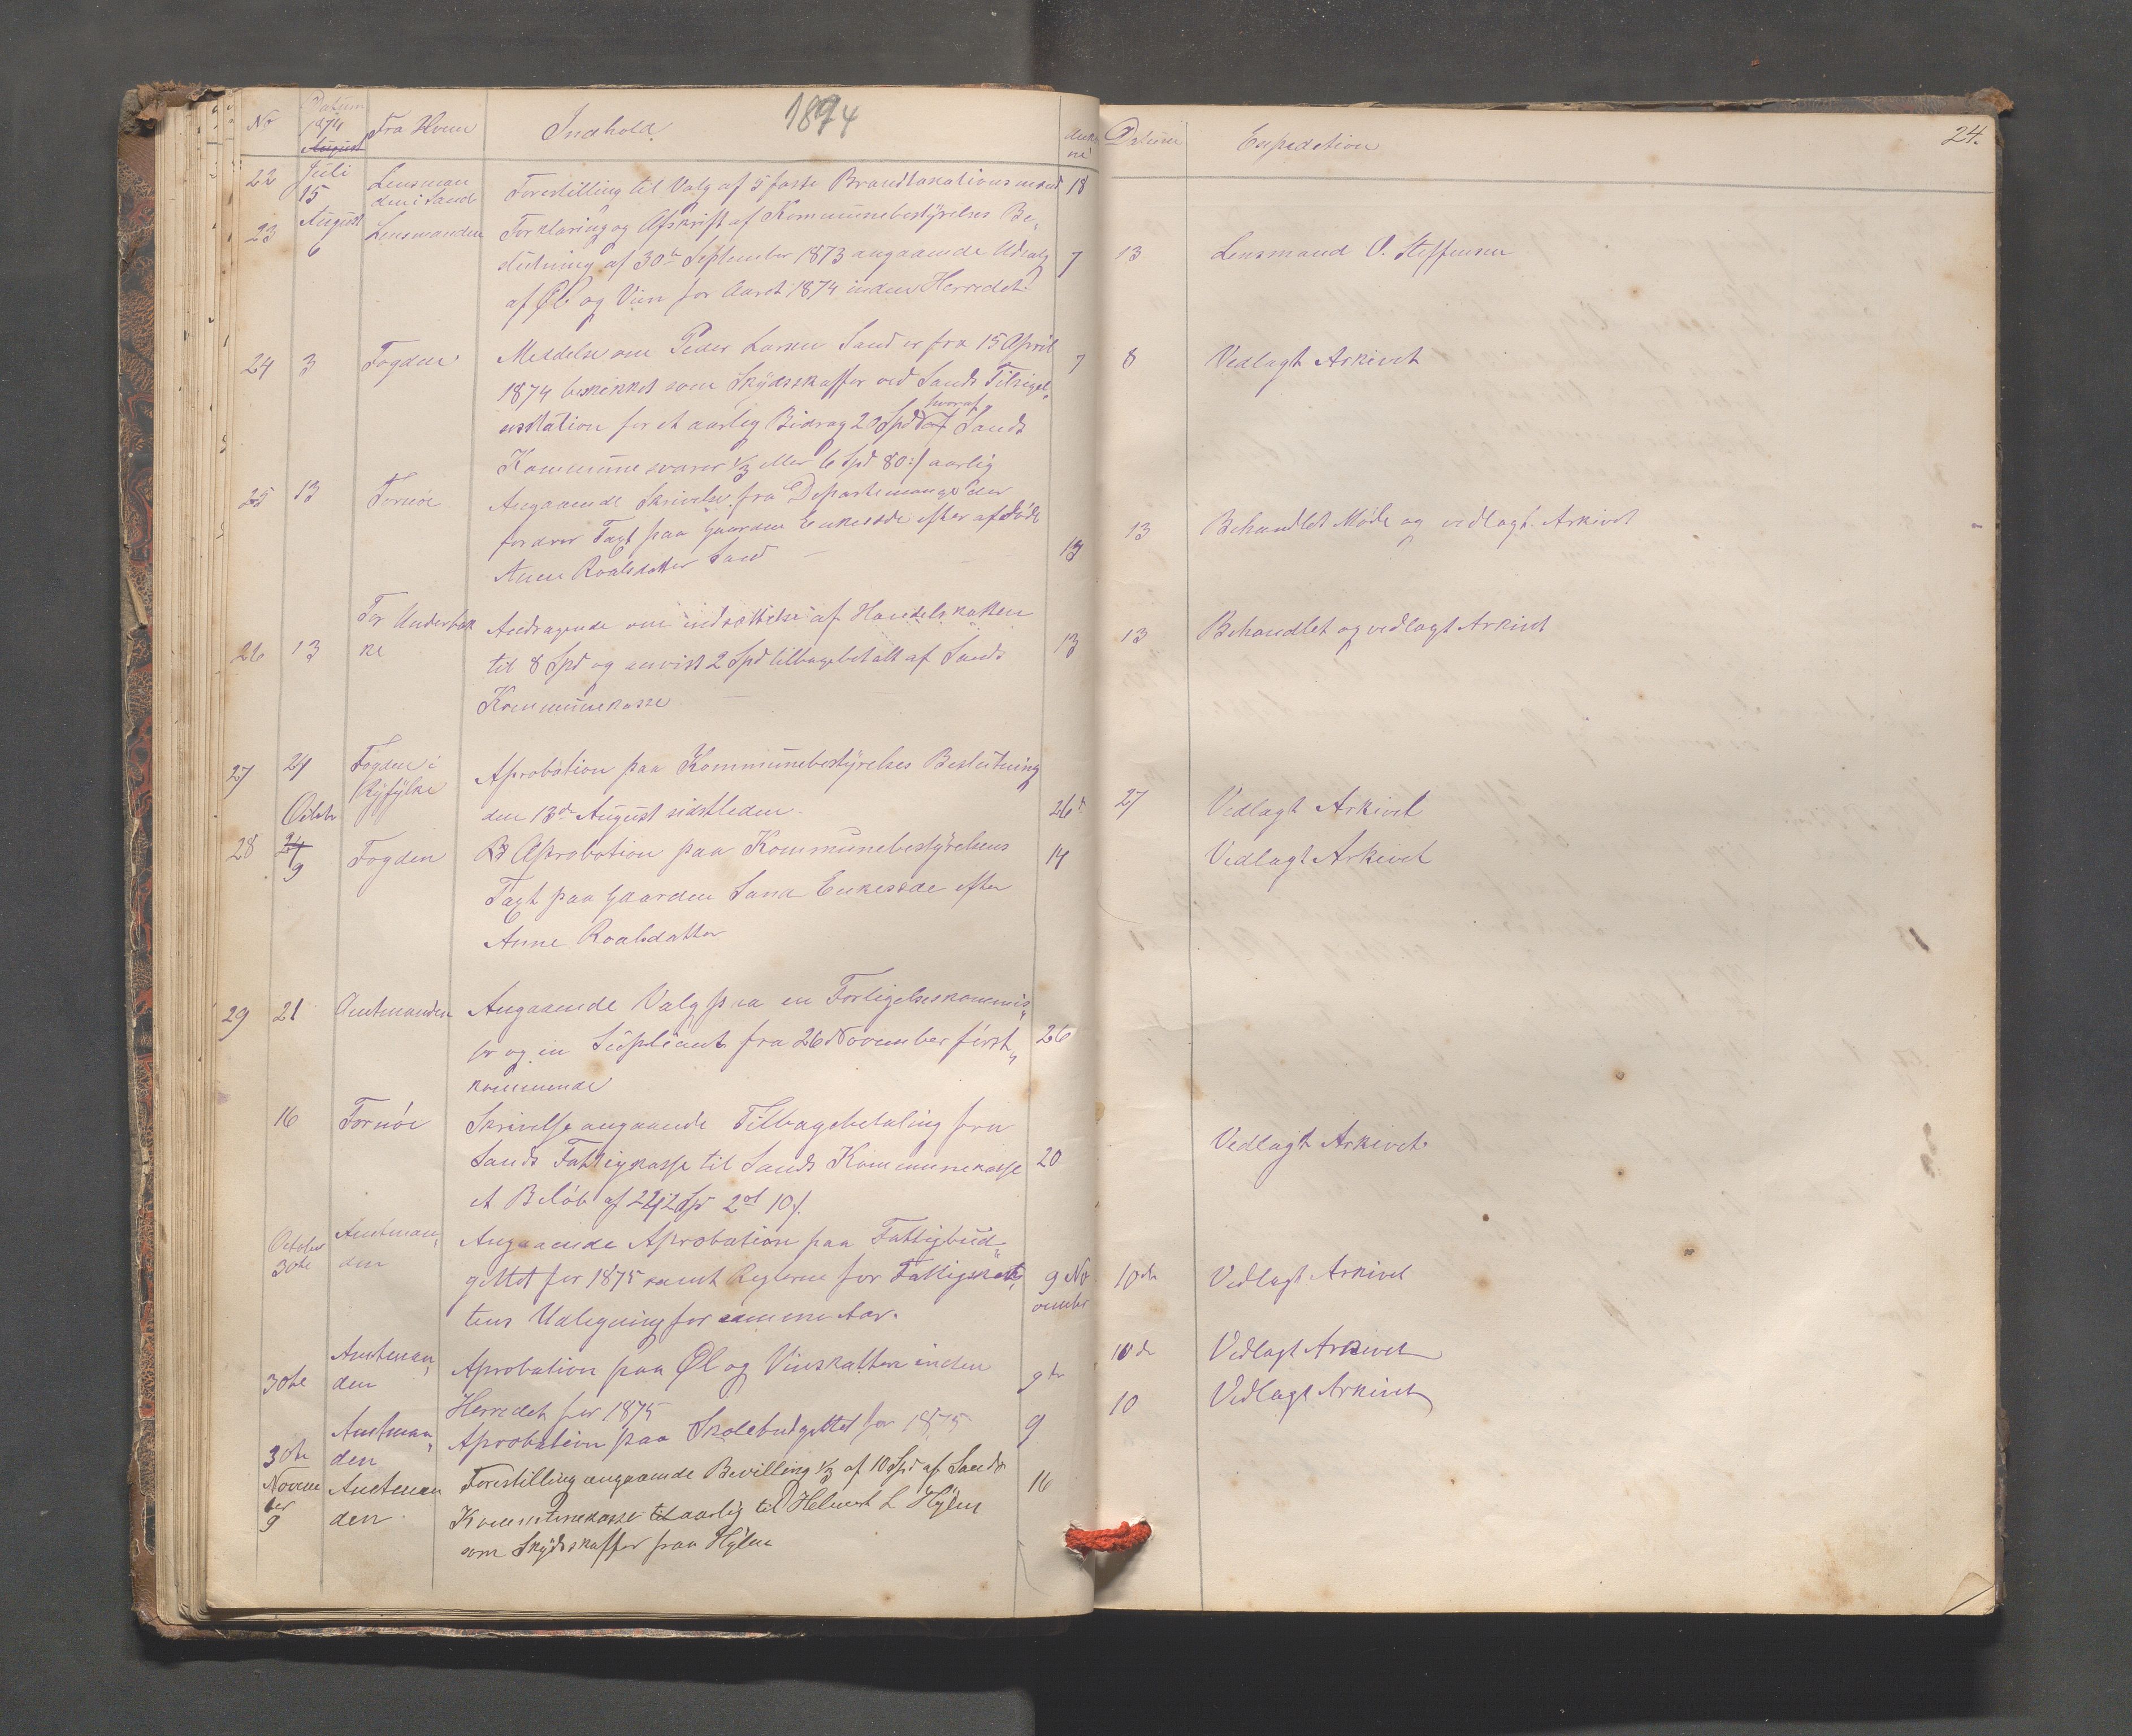 1874
No
Datum
1874
August
Fra Hvem
Indhold
Ankomne
Datum
Expedition
24.
22
Juli
15
Lensman
den i Sand
Forestilling til Valg af 5 faste Brandtaxationsmænd
18
23
August
6
Lensmanden
Forklaring og Afskrift af Kommunebestÿrelses Be„
slutning af 30te September 1873 angaaende Udsalg
af Øl og Vin for Aaret 1874 inden Herredet
7
13
Lensmand O. Steffensen
24
3
Fogden
Meddelse om Peder Larsen Sand er fra 15 April
1874 beskikket som Skÿdsskaffer ved Sands Tilsigel„
sesstation for et aarlig Bidrag 20 Spd hvoraf Sands
Kommune svarer ⅓ eller 6 Spd 80 ſ aarlig
7
8
Vedlagt Arkivet
25
13
Tornøe
Angaaende Skrivelse fra Departemange der
fordrer Taxt paa Gaarden Enkesæde efter afdøde
Anne Roalsdatter Sand
13
13
Behandlet Møde og vedlagt Arkivet
26
13
Tor Underbak
ke
Andragende om nedsættelse af Handelskatten
til 8 Spd og senvist 2 Spd tilbagebetalt af Sands
Kommunekasse
13
13
Behandlet og vedlagt Arkivet
27
24
Fogden i
Rÿfÿlke
Aprobation paa Kommunebestÿrelses Beslutning
den 13de August sidstleden
26d
27
Vedlagt Arkivet
28
Octobr
9
Fogden
Aprobation paa Kommunebestÿrelsens
Taxt paa Gaarden Sand Enkesæde efter
Anne Roalsdatter
14
Vedlagt Arkivet
29
21
Amtmanden
Angaaende Valg paa en Forligelseskommis„
ær og en Supleant fra 26 November først„
kommende
26
16
Tornöe
Skrivelse angaaende Tilbagebetaling fra
Sands Fattigkasse til Sands Kommunekasse
et Beløb af Spd 2 ort 10 ſ
20
Vedlagt Arkivet
October
30te
Amtman„
den
Angaaende Aprobation paa Fattigbud„
gettet for 1875 samt Reglerne for Fattigskat„
tens Udligning for samme Aar.
9 No
vember
10de
Vedlagt Arkivet
30te
Amtman„
den
Aprobation paa Øl og Vinskatten inden
Herredet for 1875
9de
10de
Vedlagt Arkivet
30te
Amtman„
den
Aprobation paa Skolebudgettet for 1875
9
10
Vedlagt Arkivet
Novem
ber
9
Amtman
den
Forestilling angaaende Bevilling ⅓ af 10 Spd af Sands
Kommunekasse aarlig til Helmert L Hÿlen
som Skÿdsskaffer paa Hÿlen
16